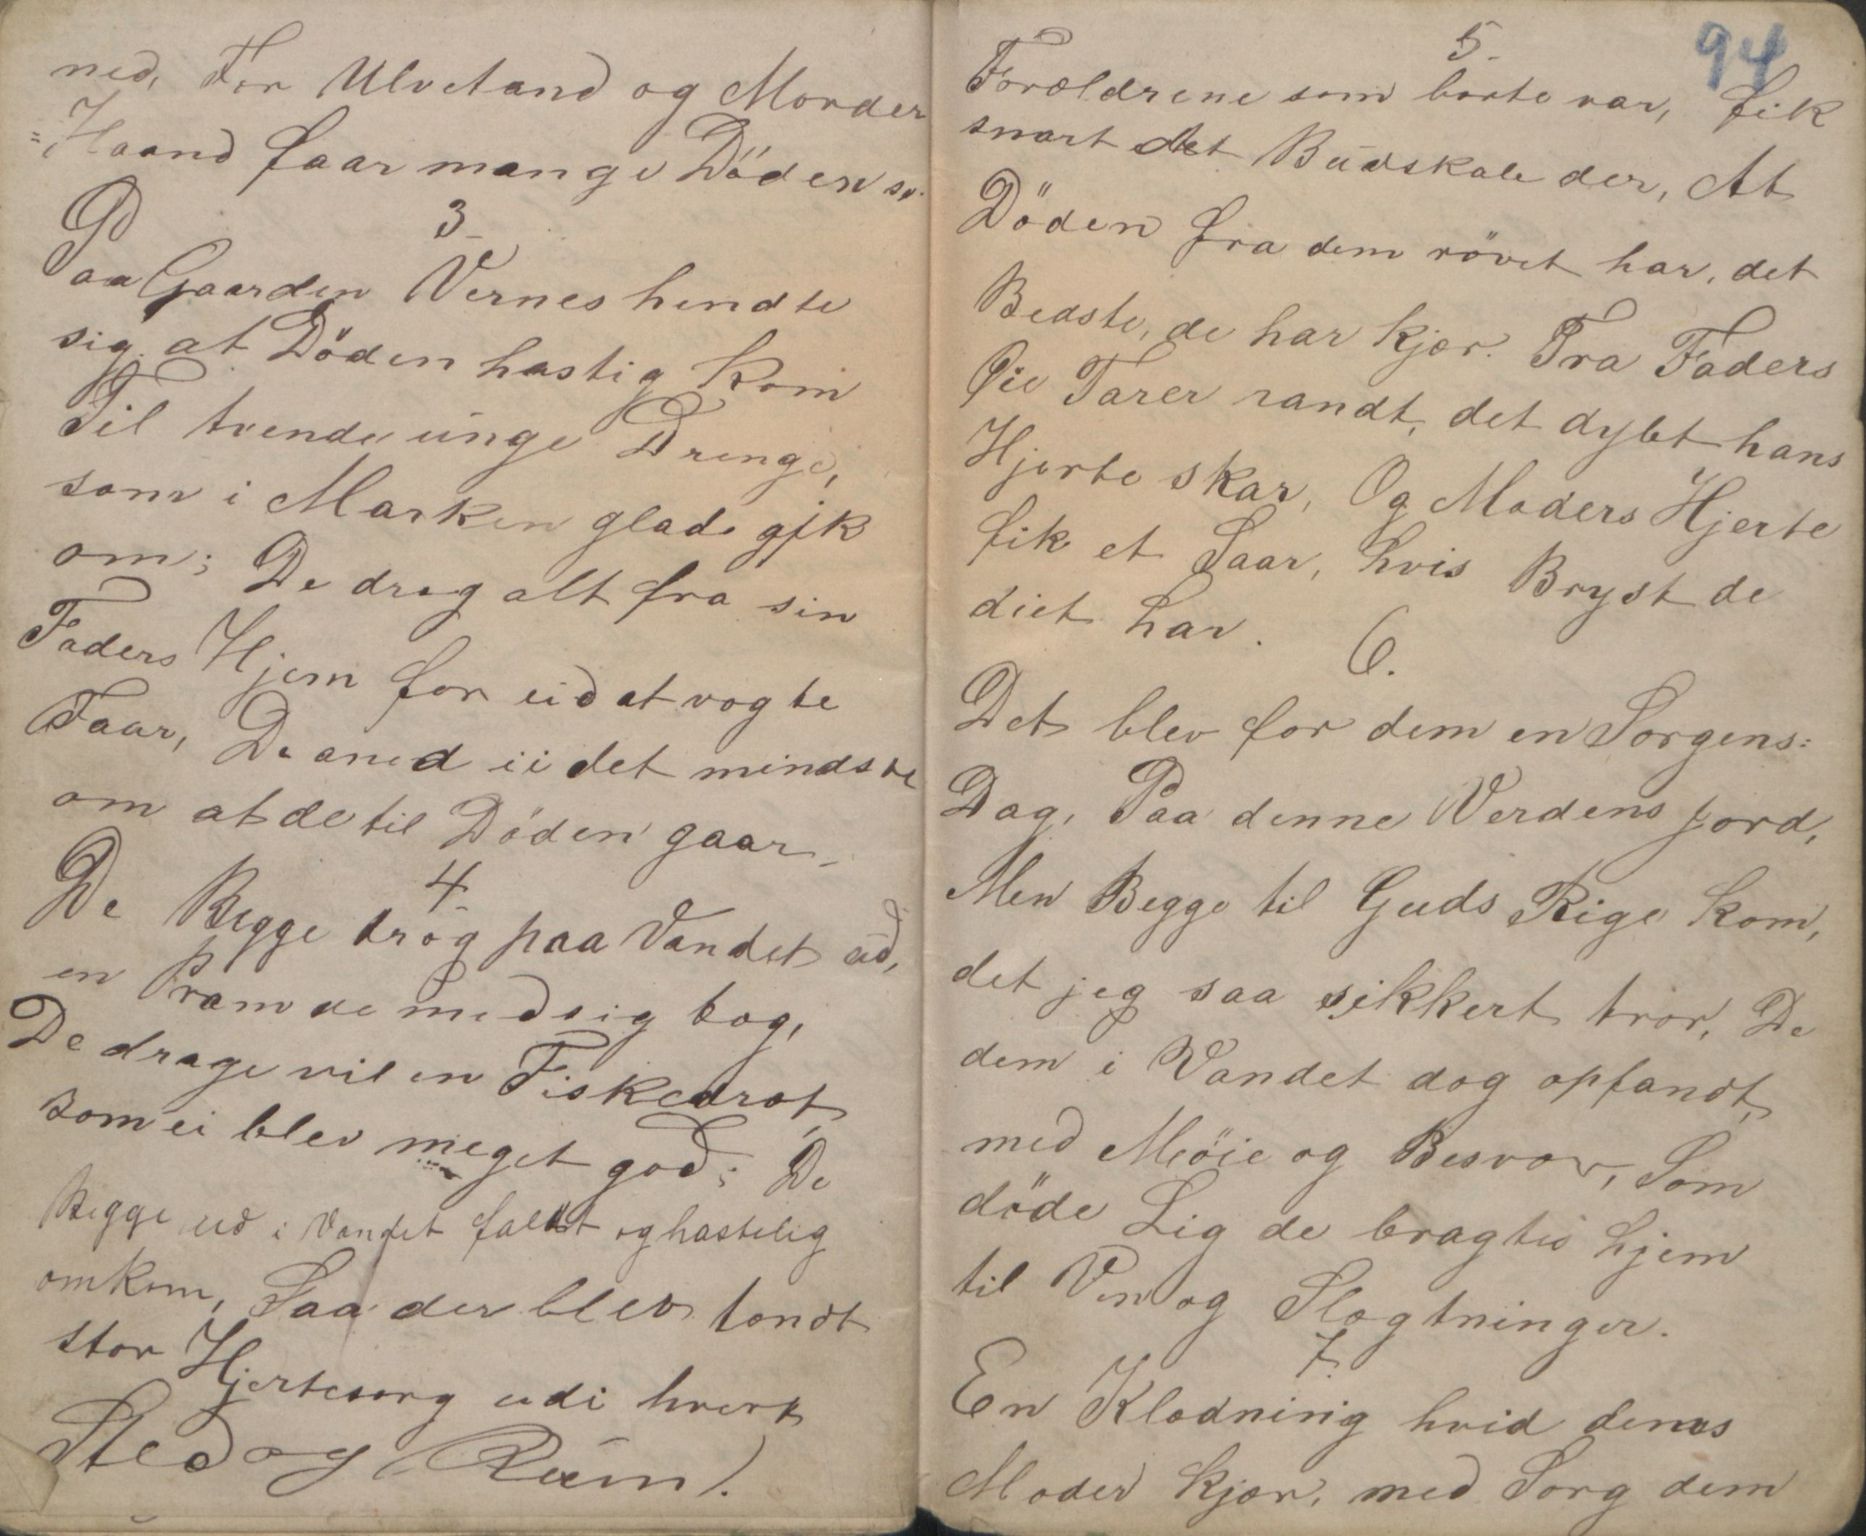 ned, For Ulvetand og Morder
=Haand faar mange Döden se.
3
Paa Gaarden Vernes hendte
sig at Döden hastig kom
Til tvende unge Drenge,
som i Marken glade gik
om; De drog alt fra sin
Faders Hjem for ud at vogte
Faar, De aned ei det mindste
om at de til Döden gaar,
4
De Begge drog paa Vandet ud,
en Pram de med sig tog,
De drage vil en Fiskedræt,
som ei blev meget god; De
Begge ud i Vandet faldt og hastelig
omkom, Saa der blev tændt
stor Hjertesorg udi hvert
Sted og Rum.
5
94
Forældrene som borte var, fik
snart det Budskab der, At
Döden fra dem rövet har, det
Bedste, de har kjær. Fra Faders
Öie Tarer randt, det dybt hans
Hjerte skar, Og Moders Hjerte
fik et Saar, hvis Bryst de
diet har.
6.
Det blev for dem en Sorgens=
Dag, Paa denne Verdens jord,
Men Begge til Guds Rige kom,
det jeg saa sikkert tror, De
dem i Vandet dog opfandt,
med Möie og Besvær, Som
döde Lig de bragtes hjem
til Ven og Slægtninger.
7.
En Klædning hvid deres
Moder kjær, med Sorg dem